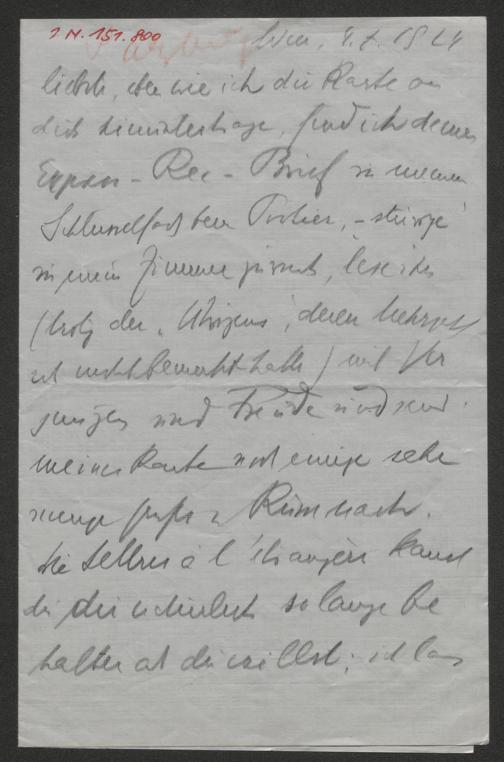 I.N. 151.800
Wien, 4.X.1924
liebste, eben wie ich die Karte an
dich hinuntertrage, find ich deinen
Express-Rec-Brief in meinem
Schlüsselfach beim Portier, - stürze
in mein Zimmer zurück, lese ihn
(trotz der "Übrigens", deren Mehrzahl
ich nicht bemerkt hatte) mit Ver
gnügen und Freude und sende
meiner Karte noch einige sehr
innige Grüße nach.
Die Lettres à l'étrangère kannst
du dir natürlich so lange be
halten als du willst; ich las